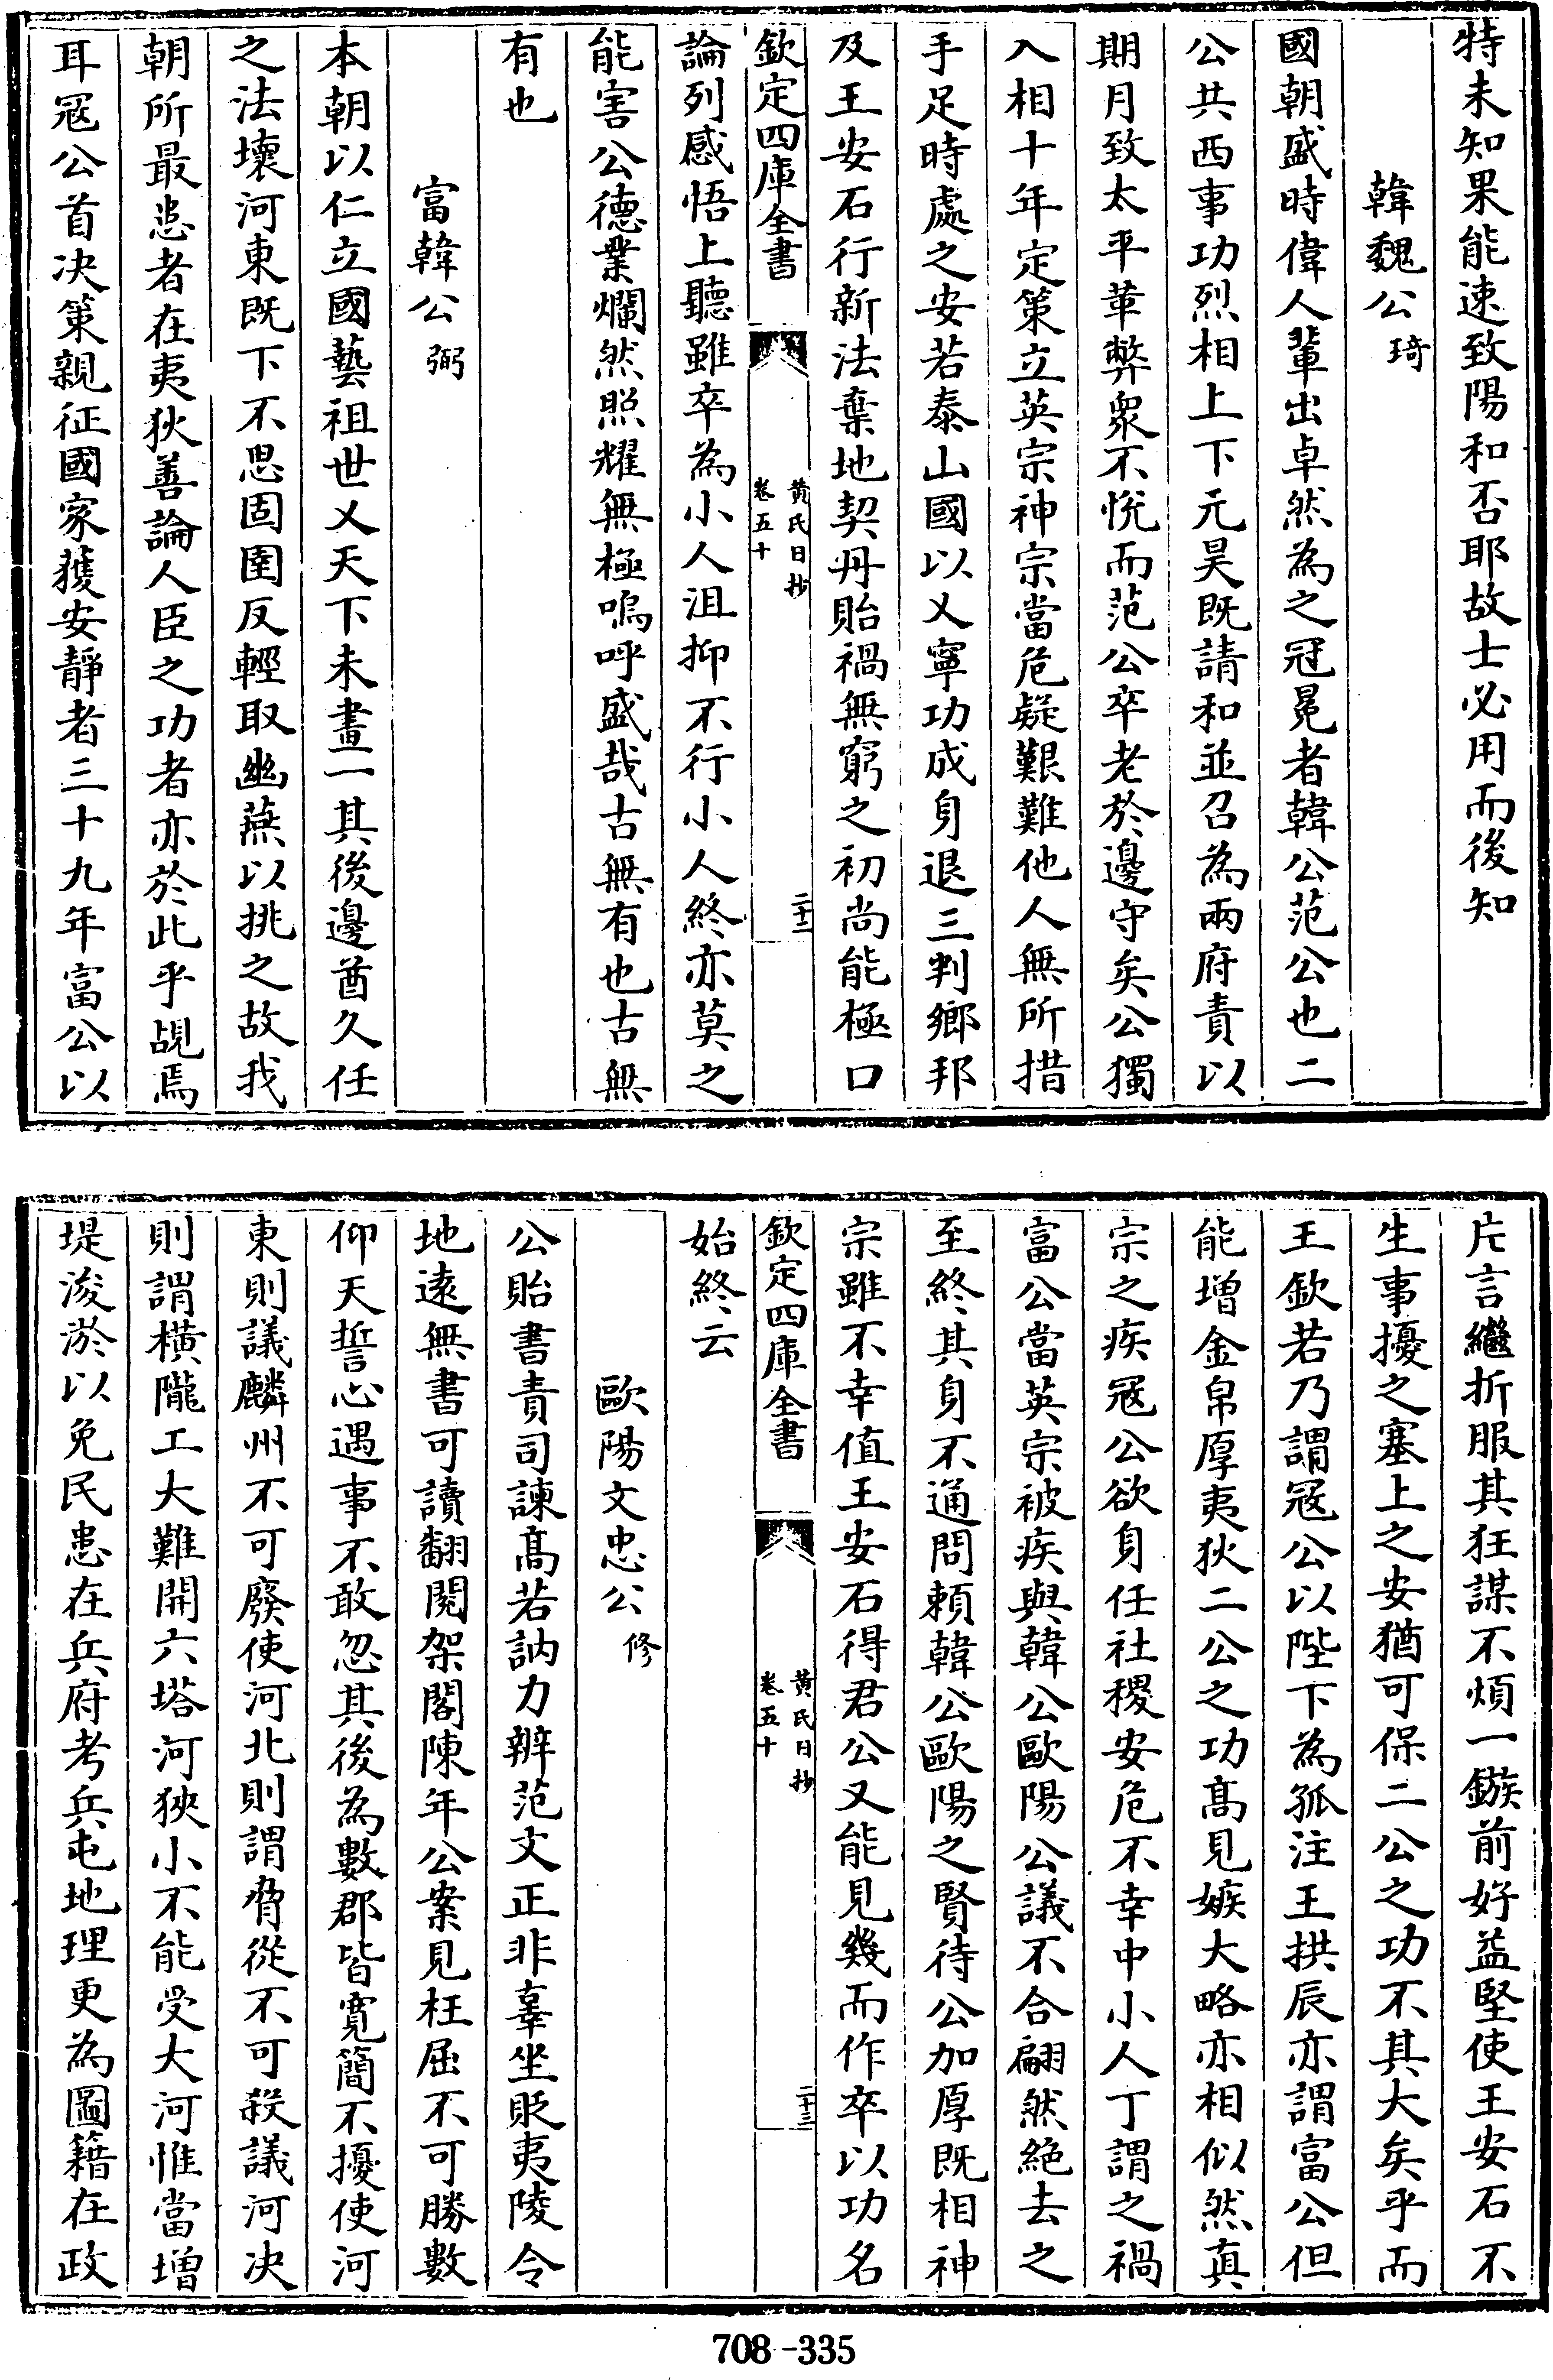 特未知果能速致陽和否耶故士必用而後知
韓魏公琦
國朝盛時偉人輩出卓然為之冠冕者韓公范公也二
公共西事功烈相上下元昊既請和並召為兩府責以
期月致太平革弊衆不悅而范公卒老於邊守矣公獨
入相十年定策立英宗神宗當危疑艱難他人無所措
手足時處之安若泰山國以乂寧功成身退三判鄉邦
及王安石行新法棄地契丹貽禍無窮之初尚能極口
欽定四庫全書
黄氏日抄
卷五十
二十二
論列感悟上聽雖卒為小人沮抑不行小人終亦莫之
能害公德業爛然照耀無極嗚呼盛哉古無有也古無
有也
富韓公弼
本朝以仁立國藝祖世乂天下未畫一其後邊酋久任
之法壞河東既下不思固圉反輕取幽燕以挑之故我
朝所最患者在夷狄善論人臣之功者亦於此乎覘焉
耳冦公首决策親征國家獲安靜者三十九年富公以
片言繼折服其狂謀不煩一鏃前好益堅使王安石不
生事擾之塞上之安猶可保二公之功不其大矣乎而
王欽若乃謂冦公以陛下為孤注王拱辰亦謂富公但
能增金帛厚夷狄二公之功髙見嫉大略亦相似然真
宗之疾冦公欲身任社稷安危不幸中小人丁謂之禍
富公當英宗被疾與韓公歐陽公議不合翩然絶去之
至終其身不通問頼韓公歐陽之賢待公加厚既相神
宗雖不幸值王安石得君公又能見幾而作卒以功名
欽定四庫全書
黄氏日抄
卷五十
二十三
始終云
歐陽文忠公修
公貽書責司諫髙若訥力辨范文正非辜坐貶夷陵令
地遠無書可讀翻閱架閣陳年公案見枉屈不可勝數
仰天誓心遇事不敢忽其後為數郡皆寛簡不擾使河
東則議麟州不可廢使河北則謂脅從不可殺議河决
則謂橫隴工大難開六塔河狹小不能受大河惟當增
堤浚淤以免民患在兵府考兵屯地理更為圖籍在政
708-335